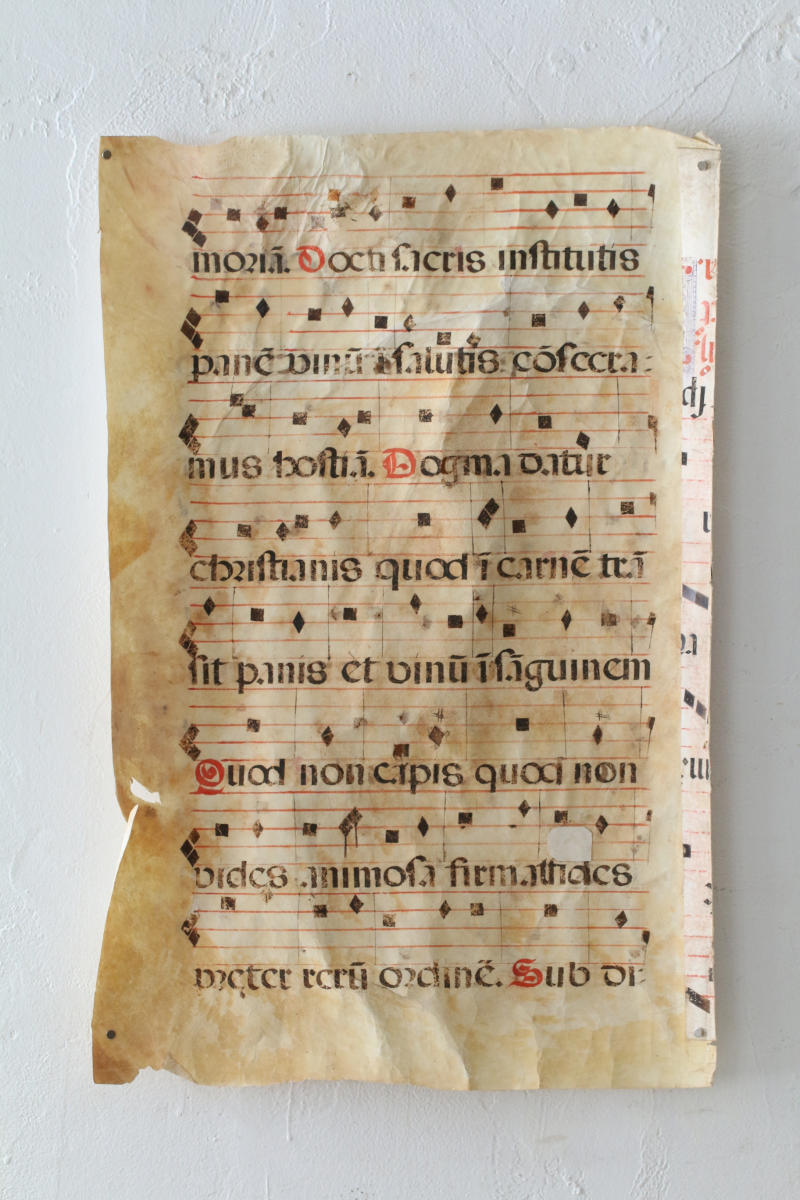 moriā. Docti sacris institutis
panē vinū ī salutis cōsecra-
mus hostiā. Dogma datur
christianis quod ī carnē trā
sit panis et vinū ī sāguinem
Quod non capis quod non
vides animosa firmat fides
preter rerū ordinē. Sub di-